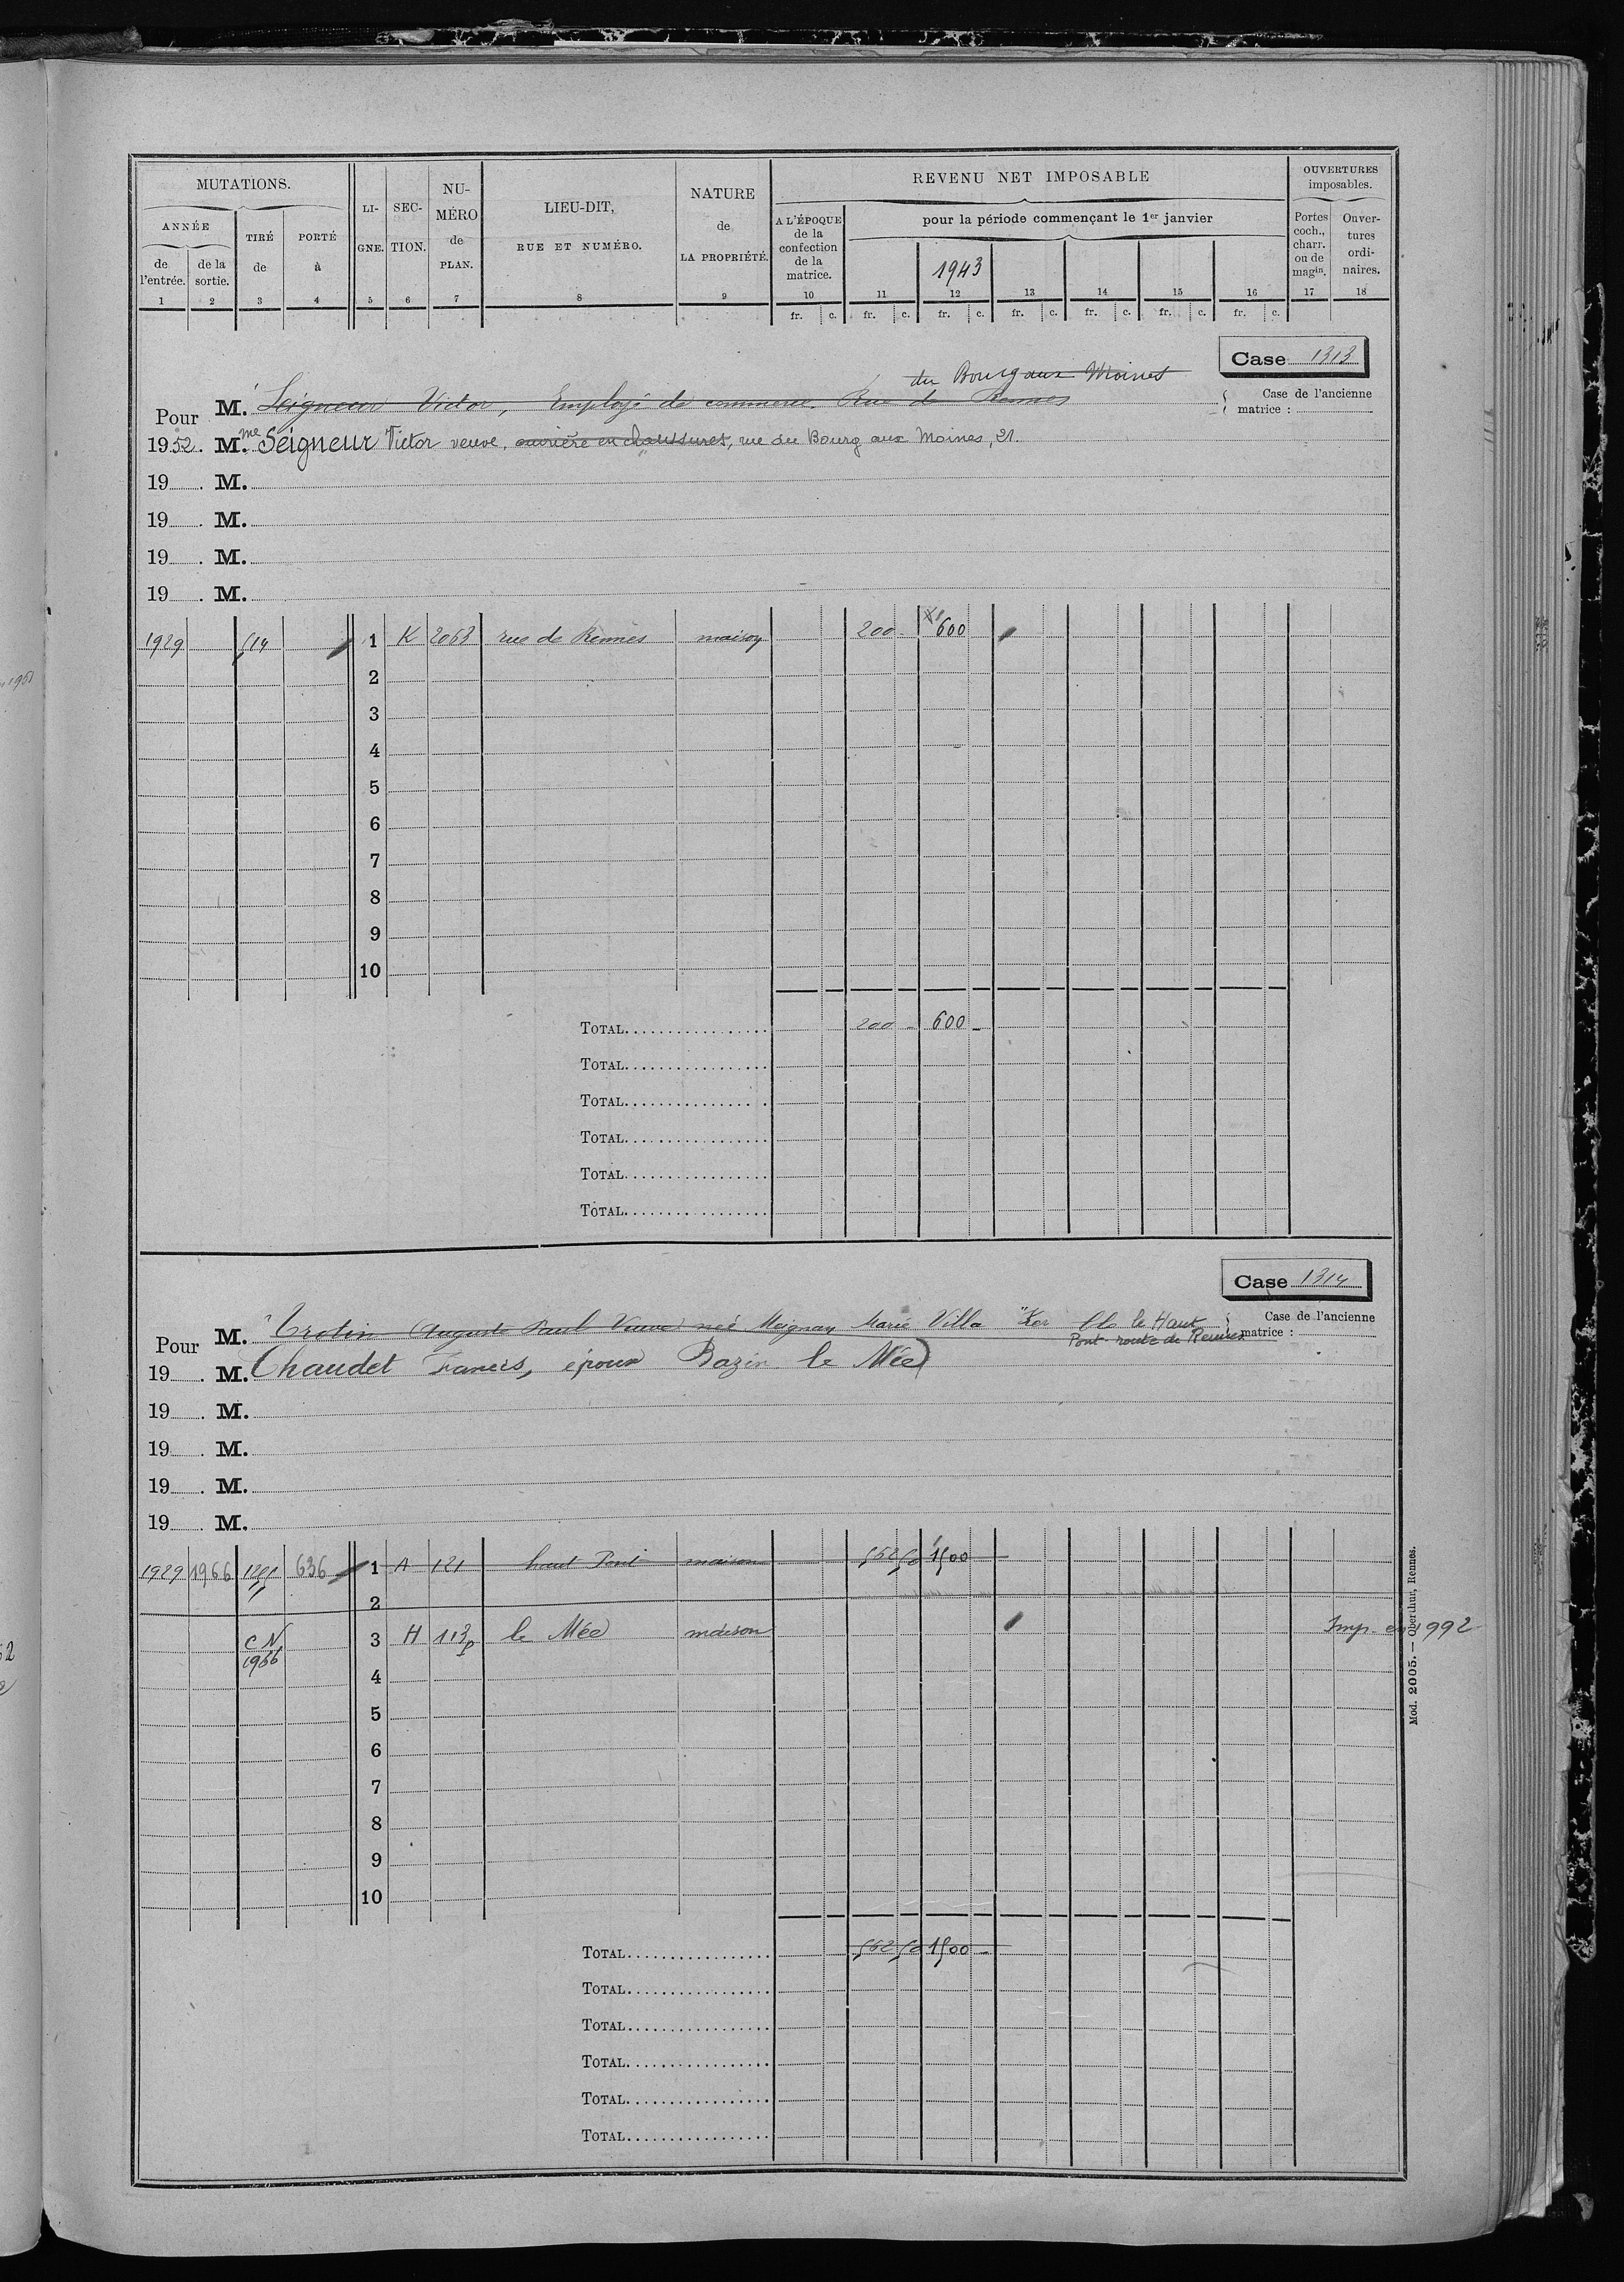 MUTATIONS.
ANNÉE
de l'entrée. de la sortie. TIRÉ de PORTÉ à
LI-GNE. SEC-TION. NU-MÉRO de PLAN.
LIEU-DIT, RUE ET NUMÉRO.
NATURE de LA PROPRIÉTÉ.
REVENU NET IMPOSABLE
A L'ÉPOQUE de la confection de la matrice.
pour la période commençant le 1er janvier
1943
OUVERTURES imposables.
Portes coch., charr. ou de magin. Ouver-tures ordi-naires.
1 2 3 4 5 6 7 8 9 10 11 12 13 14 15 16 17 18
fr. c. fr. c. fr. c. fr. c. fr. c. fr. c. fr. c.
Case 1313
du Bourg aux Moines
Case de l'ancienne matrice :
Pour M. Seigneur Victor, Employé de commerce Rue de Rennes
1952. Mme Seigneur Victor veuve, ouvrière en chaussures, rue du Bourg aux Moines, 21.
19 . M.
19 . M.
19 . M.
19 . M.
1929 614 1 K 2063 rue de Rennes maison 200 - 600
2
3
4
5
6
7
8
9
10
TOTAL 200 - 600 -
TOTAL
TOTAL
TOTAL
TOTAL
TOTAL
Case 1314
Case de l'ancienne matrice :
Pour M. Trotin Auguste Paul Veuve née Meignan Marie Villa "Ker le Haut
Pont route de Rennes
19 . M. Chaudet Francis, époux Bazin le Mée
19 . M.
19 . M.
19 . M.
19 . M.
1929 1966 636 1 A 121 haut Pont maison 562 50 1500
2
CN 1966 3 H 113p le Mée maison Imp. en 1992
4
5
6
7
8
9
10
TOTAL 562 50 1500 -
TOTAL
TOTAL
TOTAL
TOTAL
TOTAL
Mod. 2005. — Oberthur, Rennes.